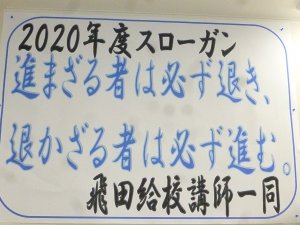 2020年度スローガン
進まざる者は必ず退き、
退かざる者は必ず進む。
飛田給校講師一同